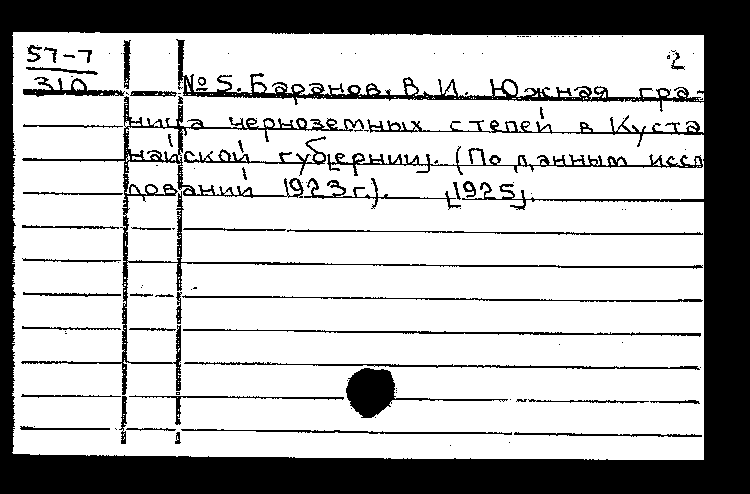 57-7
310
2
№ 5. Баранов, В. И. Южная гра-
ница черноземных степей в Куста
найской губ[ернии]. (По данным иссл
дований 1923 г.). [1925].